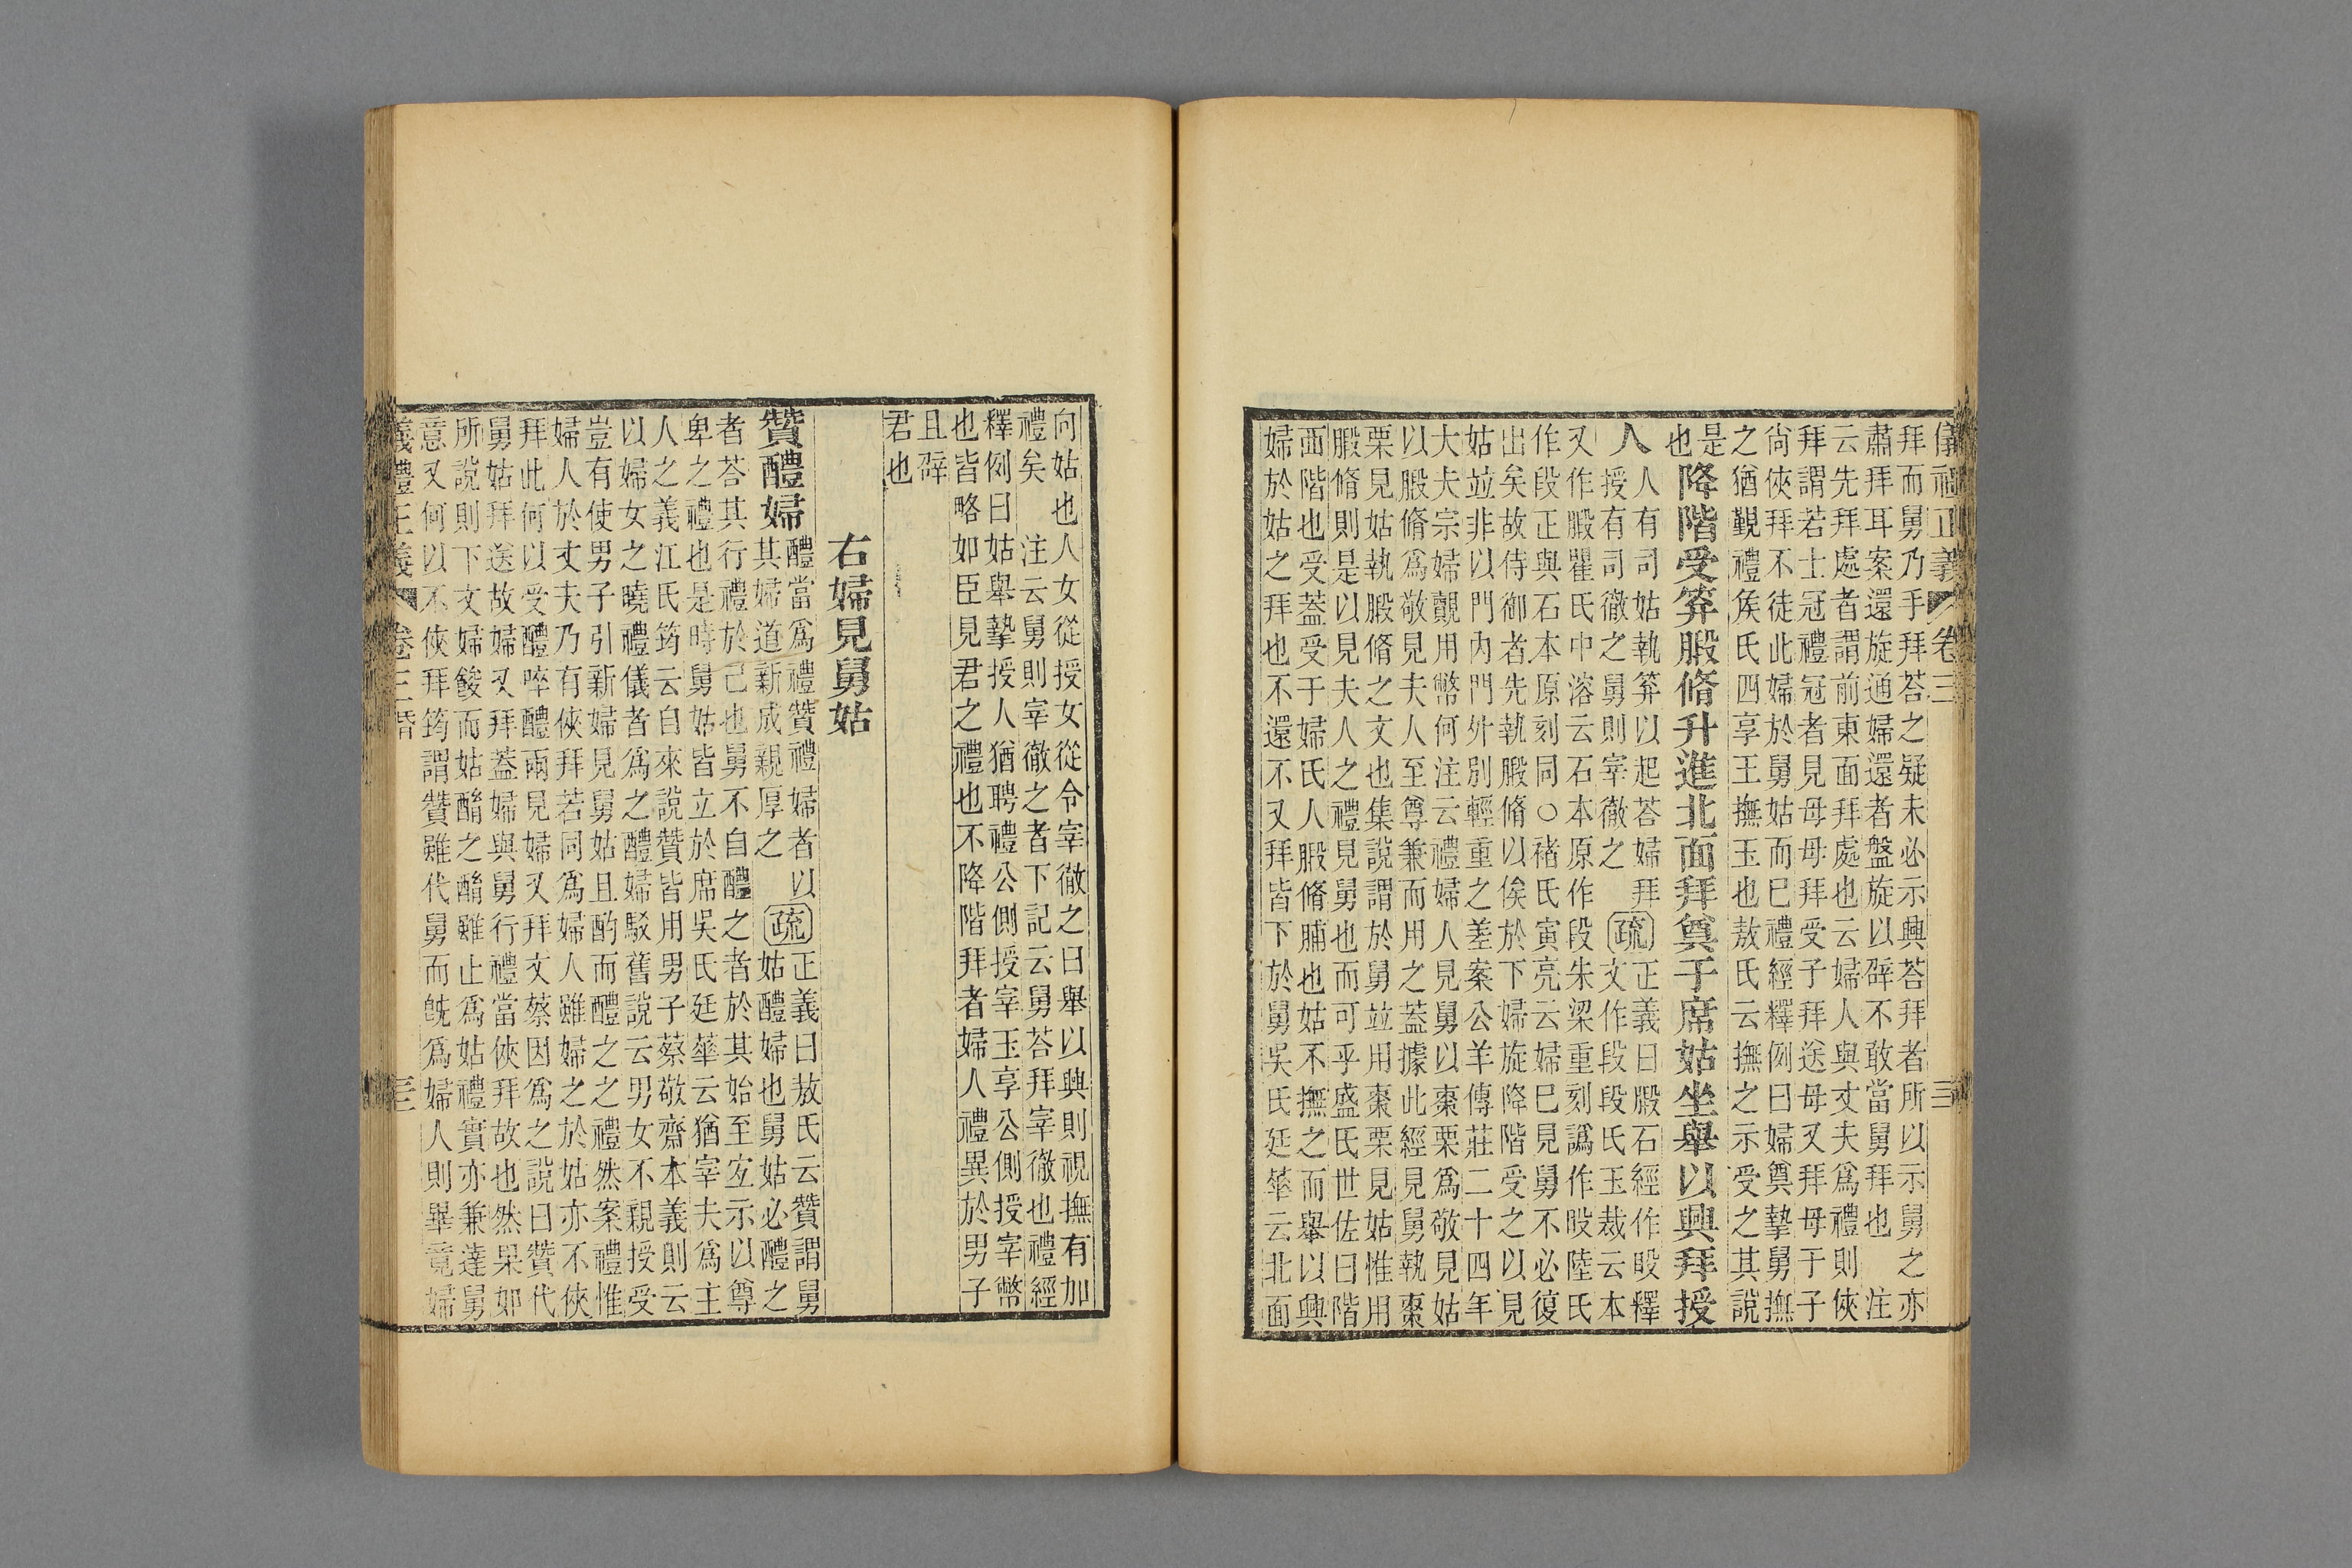 儀禮正義 卷三
拜而舅乃手拜荅之疑未必示興荅拜者所以示舅之亦
肅拜耳案還旋通婦還者盤旋以辟不敢當舅拜也 注
云先拜處者謂前東面拜處也云婦人與丈夫爲禮則俠
拜謂若士冠禮冠者見母母拜受子拜送母又拜母于子
尙俠拜不徒此婦於舅姑而已禮經釋例曰婦奠摯舅撫
之猶覲禮矦氏四享王撫玉也敖氏云撫之示受之其說
是
也
降階受笲腶脩升進北面拜奠于席姑坐舉以興拜授
人
人有司姑執笲以起荅婦拜
授有司徹之舅則宰徹之
疏
正義曰腶石經作腶釋
文作段段氏玉裁云本
又作腶瞿氏中溶云石本原作段朱梁重刻譌作腶陸氏
作段正與石本原刻同○褚氏寅亮云婦已見舅不必復
出矣故侍御者先執腶脩以俟於下婦旋降階受之以見
姑並非以門內門外別輕重之差案公羊傳莊二十四年
大夫宗婦覿用幣何注云禮婦人見舅以棗栗爲敬見姑
以腶脩爲敬見夫人至尊兼而用之蓋據此經見舅執棗
栗見姑執腶脩之文也集說謂於舅並用棗栗見姑惟用
腶脩則是以見夫人之禮見舅也而可乎盛氏世佐曰階
西階也受蓋受于婦氏人腶脩脯也姑不撫之而舉以興
婦於姑之拜也不還不又拜皆下於舅吳氏廷華云北面
向姑也人女從授女從令宰徹之曰舉以興則視撫有加
禮矣 注云舅則宰徹之者下記云舅荅拜宰徹也禮經
釋例曰姑舉摯授人猶聘禮公側授宰玉享公側授宰幣
也皆略如臣見君之禮也不降階拜者婦人禮異於男子
且辟
君也
右婦見舅姑
贊醴婦
醴當爲禮贊禮婦者以
其婦道新成親厚之
疏
正義曰敖氏云贊謂舅
姑醴婦也舅姑必醴之
者荅其行禮於己也舅不自醴之者於其始至宜示以尊
卑之禮也是時舅姑皆立於席吳氏廷華云猶宰夫爲主
人之義江氏筠云自來說贊皆用男子蔡敬齋本義則云
以婦女之曉禮儀者爲之醴婦駁舊說云男女不親授受
豈有使男子引新婦見舅姑且酌而醴之之禮然案禮惟
婦人於丈夫乃有俠拜若同爲婦人雖婦之於姑亦不俠
拜此何以受醴啐醴兩見婦又拜文蔡因爲之說曰贊代
舅姑拜送故婦又拜蓋婦與舅行禮當俠拜故也然杲如
所說則下文婦餕而姑酳之酳雖止爲姑禮實亦兼達舅
意又何以不俠拜筠謂贊雖代舅而旣爲婦人則畢竟婦
義禮正義 卷三 昏